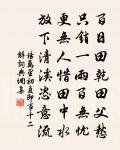 百日田乾田父愁
只銷一雨百無憂
更無人惜田中水
放下清溪恣意流
萬里初夏即事十二
解詞典網集